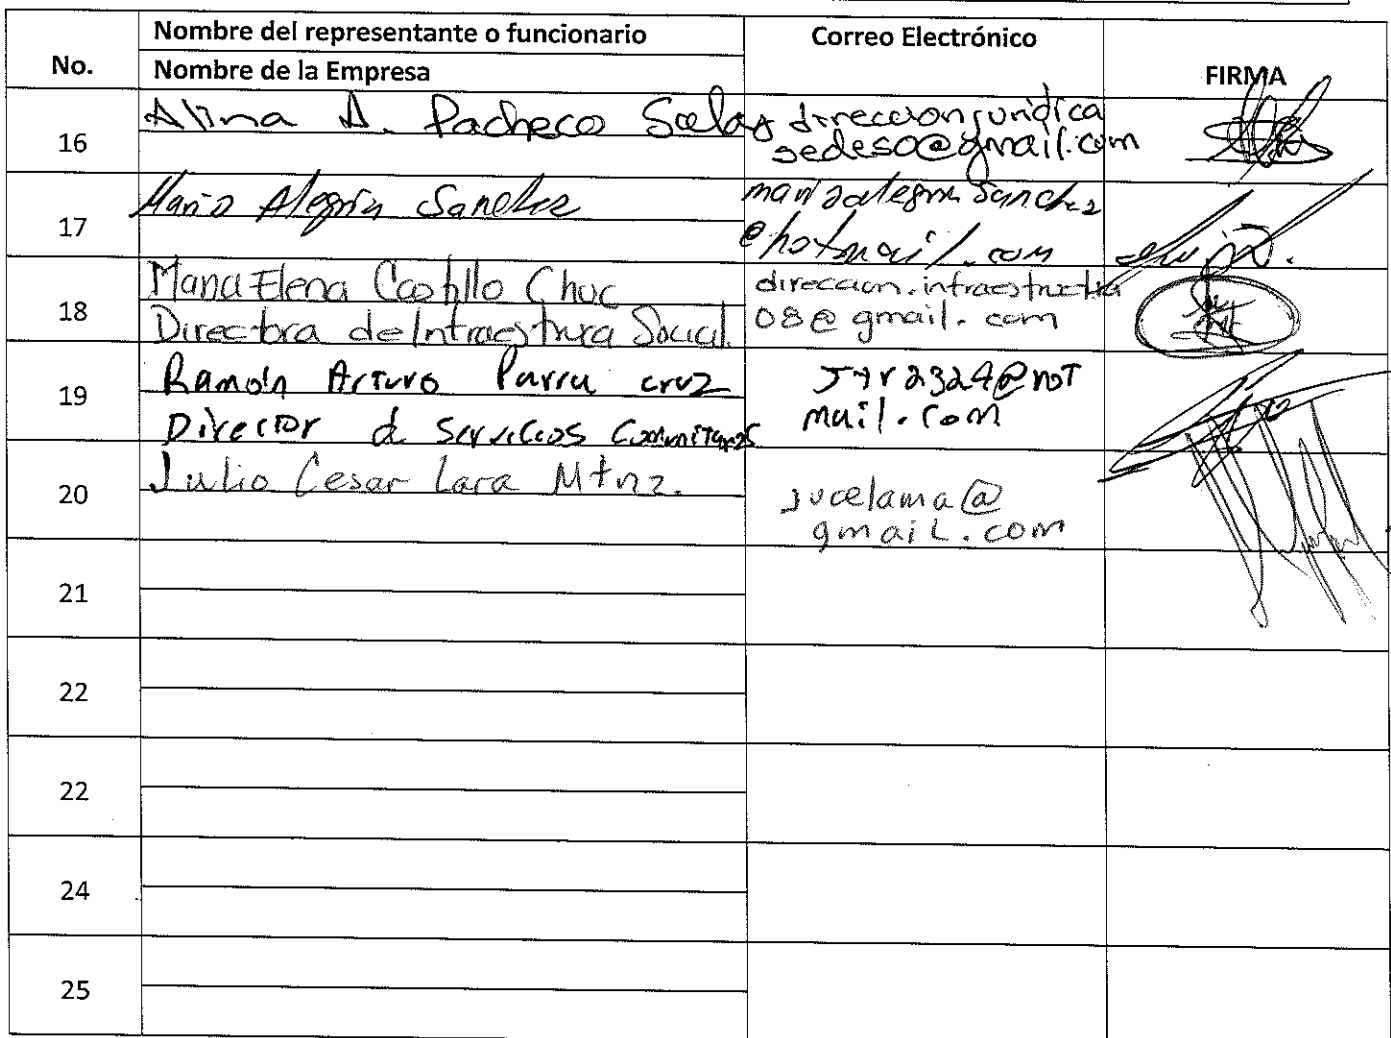 Nombre del representante o funcionario
Correo Electrónico
No.
Nombre de la Empresa
FIRMA
16
Alina A. Pacheco Salas
direccionjuridica
sedeso@gmail.com
17
Mario Alegría Sanchez
marioalegriasanchez
@hotmail.com
18
Maria Elena Castillo Chuc
Directora de Infraestrura Social
direccion.infraestructura
08@gmail.com
19
Ramón Arturo Parra cruz
Director de Servicios Comunitarios
2324@hot
mail.com
20
Julio Cesar Lara Mtnz.
jucelama@
gmail.com
21
22
22
24
25